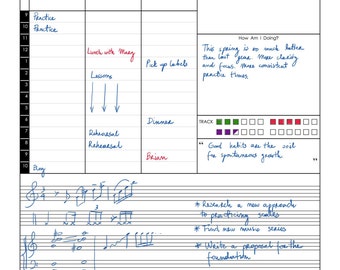 9 Practice
10 Practice
11
12 Lunch with Mary
1 Pick up Labels
2 Lessons
Dinner
Rehearsal
Rehearsal
9 Brian
10
How Am I Doing?
This spring is so much better
than last year. More clarity
and focus. More consistent
practice times.
TRACK:
" Good habits are the soil
for spontaneous growth "
* Research a new approach
to practicing scales
* Find new music series
* Write a proposal for the
foundation